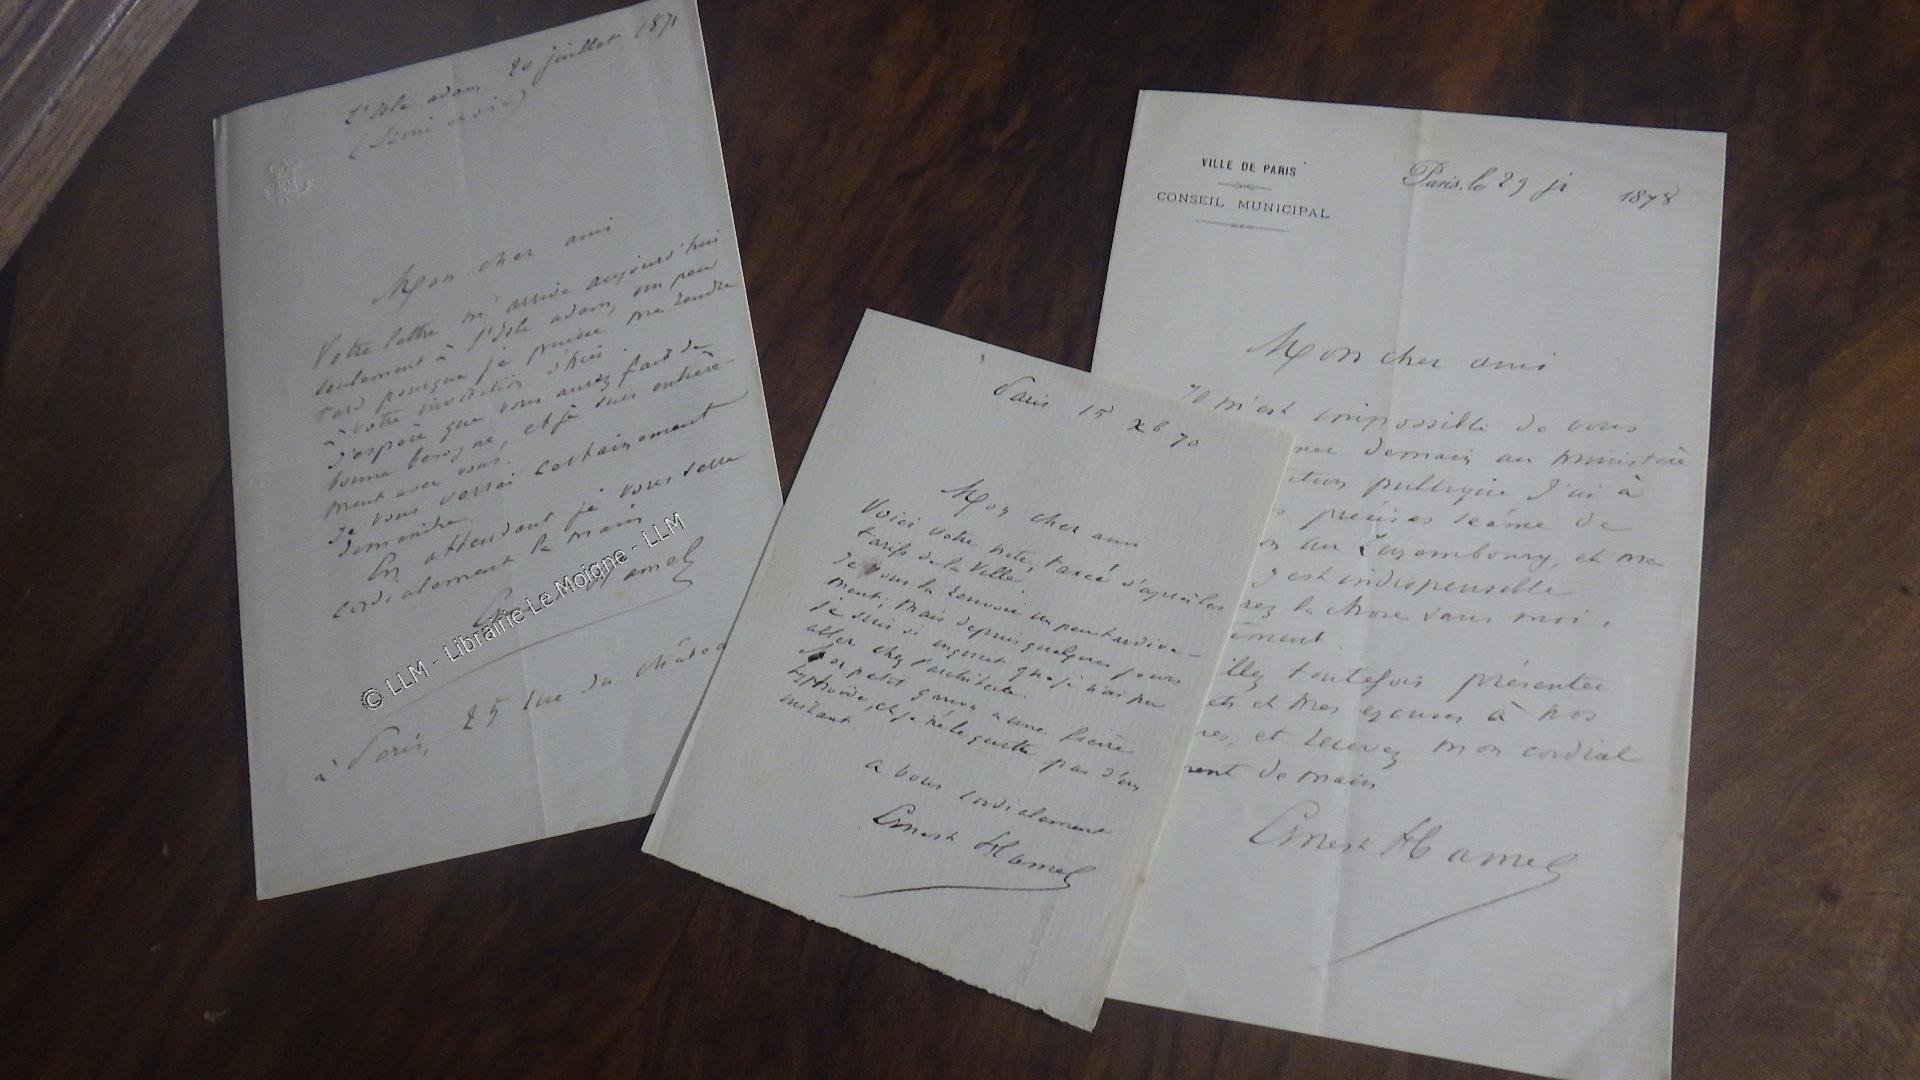 L'Isle adam, 20 juillet 1871
(Seine et oise)
Mon cher ami
Votre lettre m'arrive aujourd'hui
seulement à l'Isle adam, un peu
tard pourque je puisse me rendre
à votre invitation d'hui.
J'espère que vous aurez fait de
bonne besogne, et je suis entière-
ment avec vous.
Je vous verrai certainement
dimanche.
En attendant je vous serre
cordialement la main
Hamel
à Paris, 25 rue du château
© LLM - Librairie Le Moigne - LLM
Paris 15 Xb 70
Mon cher ami
Voici votre note, taxée d'après les
tarifs de la Ville.
Je vous la renvoie un peu tardive-
ment; mais depuis quelques jours
je suis si que je n'ai pu
aller chez l'architecte.
Mon petit garçon a une fièvre
typhoïde, et je ne le quitte pas d'un
instant.
a vous cordialement
Ernest Hamel
VILLE DE PARIS
CONSEIL MUNICIPAL
Paris, le 29 1878
Mon cher ami
Il m'est impossible de vous
ner demain au ministère
ction publique J'ai à
s précises séance de
on au Luxembourg, et ma
y est indispensable
rez la chose sans moi,
ément.
illez toutefois présenter
ets et mes excuses à nos
res, et recevez mon cordial
ment de main
Ernest Hamel